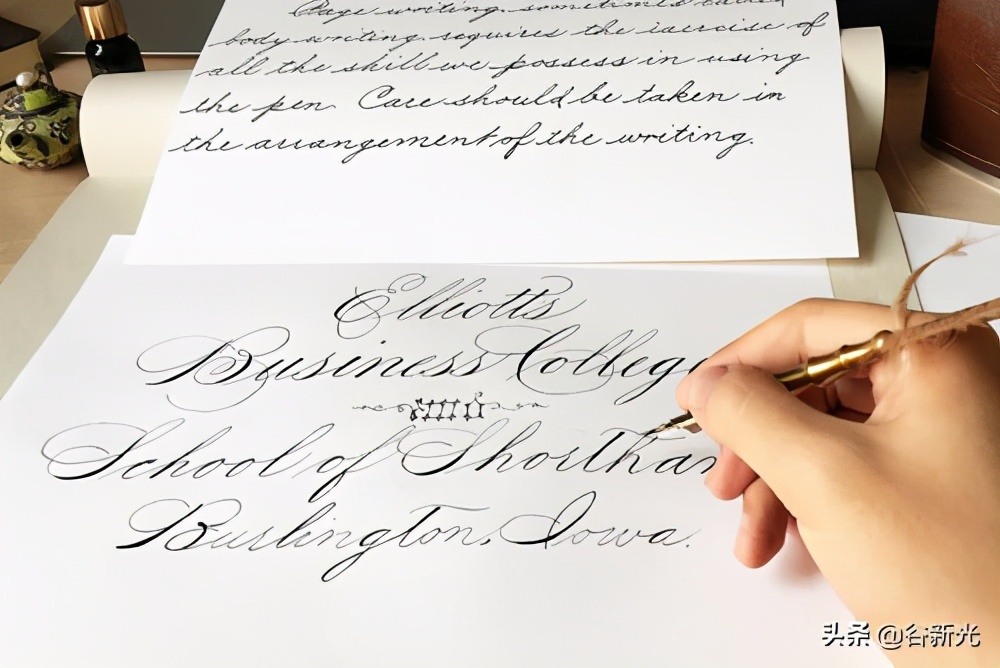 Page writing, sometimes called
body writing requires the exercise of
all the skill we possess in using
the pen. Care should be taken in
the arrangement of the writing.
Elliotts
Business College
and
School of Shorthan
Burlington, Iowa.
头条 @谷新光